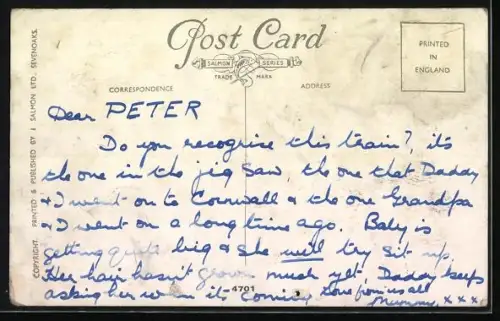 Post Card
SALMON SERIES
TRADE MARK
PRINTED
IN
ENGLAND
CORRESPONDENCE
ADDRESS
COPYRIGHT. PRINTED & PUBLISHED BY J. SALMON LTD. SEVENOAKS.
Dear PETER
Do you recognise this train?, it's
the one in the jig saw, the one that Daddy
& I went on to Cornwall & the one Grandpa
& I went on a long time ago. Baby is
getting quite big & she will try sit up.
Her hair hasn't grown much yet, Daddy keeps
asking her when its coming.
4701
Love from us all
Mummy. x x x